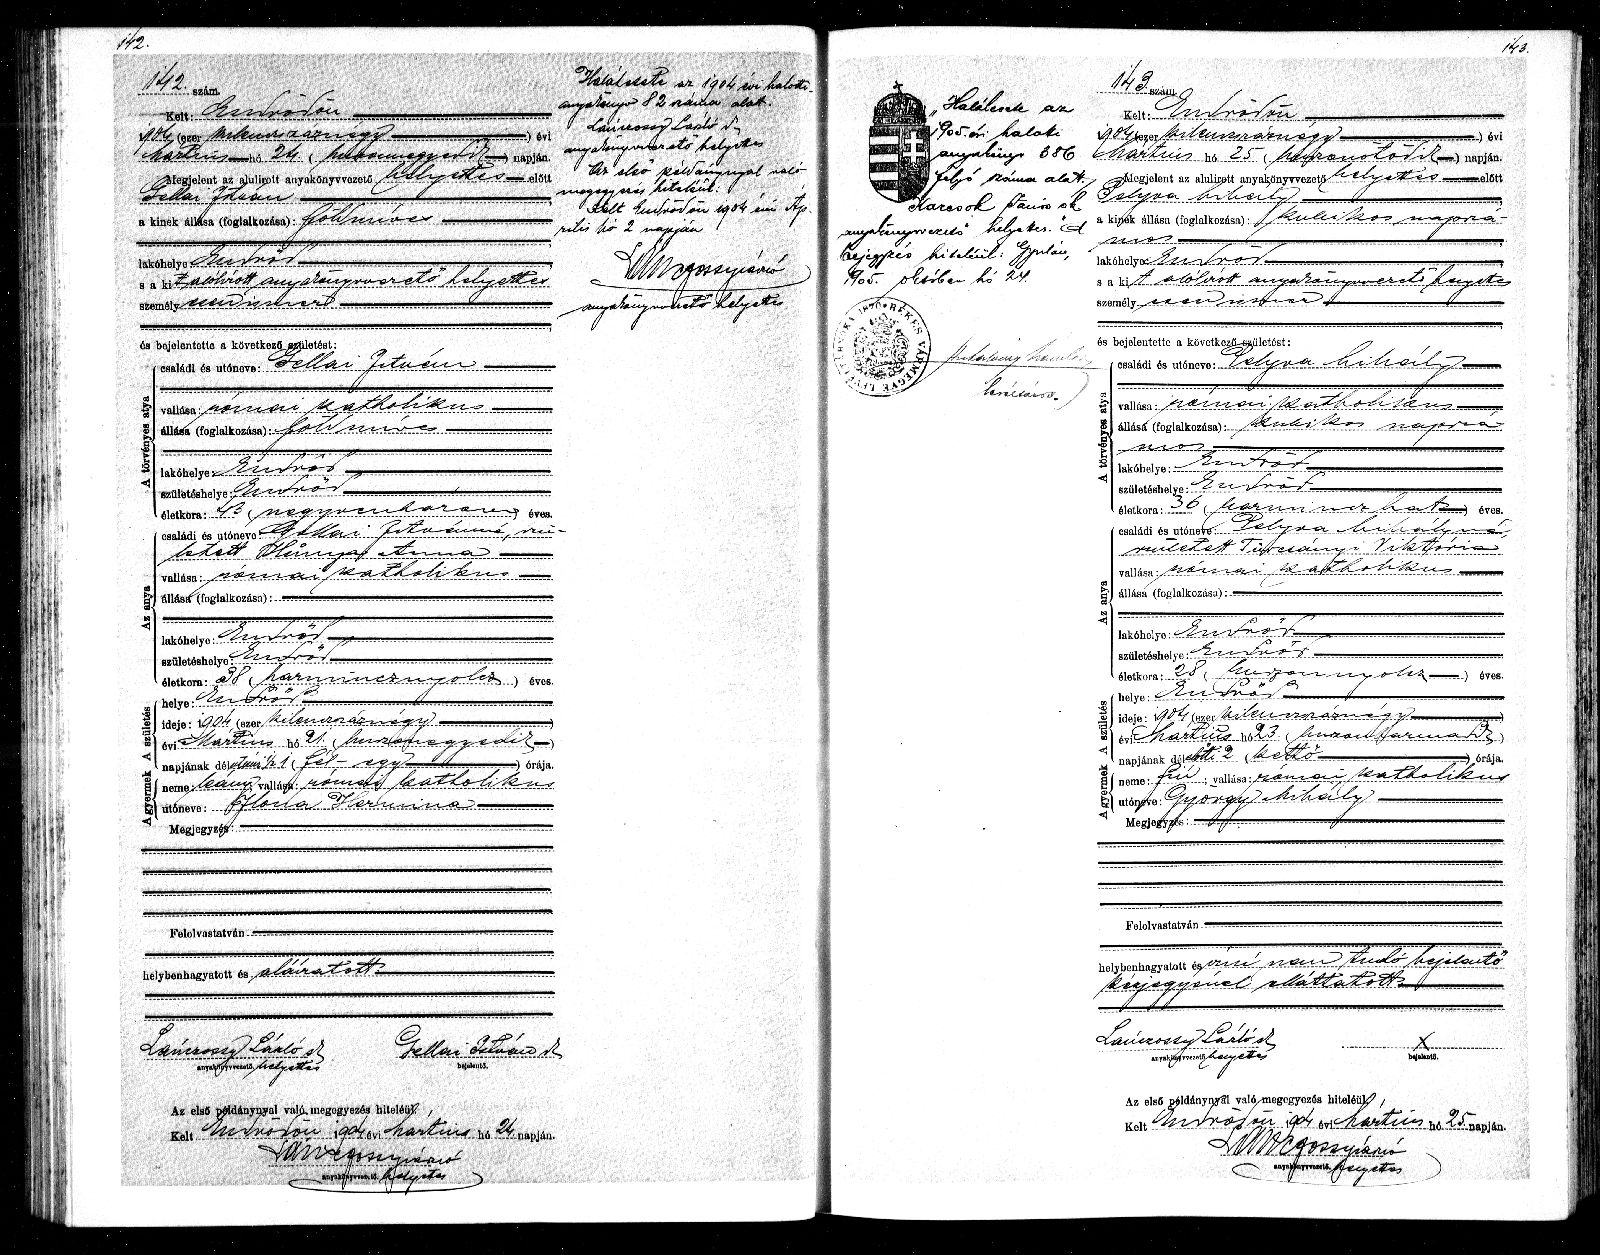 142.
142. szám.
Kelt: Endrődön
1904 (ezer kilencszáznégy) évi
Martius hó 24 (huszonnegyedik) napján.
Megjelent az alulirott anyakönyvvezető helyettes előtt
Gellai István
a kinek állása (foglalkozása): földmives
lakóhelye Endrőd
s a kit alólirott anyakönyvvezető helyettes
személyesen ismer
és bejelentette a következő születést:
A törvényes atya
családi és utóneve: Gellai István
vallása: római katholikus
állása (foglalkozása): földmives
lakóhelye: Endrőd
születéshelye: Endrőd
életkora: 43 (negyvenhárom) éves.
Az anya
családi és utóneve Gellai Istvánné, szü-
letett Hunya Anna
vallása: római katholikus
állása (foglalkozása):
lakóhelye: Endrőd
születéshelye: Endrőd
életkora: 38 (harmincznyolcz) éves.
A születés
helye: Endrőd
ideje: 1904 (ezer kilencszáznégy)
évi Martius hó 21. (huszonegyedik)
napjának délutáni ½ 1 (fél-egy) órája.
A gyermek
neme: leány; vallása: római katholikus
utóneve: Ilona Hermina
Megjegyzés:
Felolvastatván
helybenhagyatott és aláiratott
Lánczossy László sk
anyakönyvvezető helyettes
Gellai István sk
bejelentő.
Az első példánynyal való megegyezés hiteléül.
Kelt Endrődön 1904 évi Martius hó 24 napján.
Lánczossy László
anyakönyvvezető helyettes
Halálesete az 1904 évi halotti
anyakönyv 82 száma alat.
Lánczossy László sk
anyakönyvvezető helyettes
Az első példánynyal való
megegyezés hiteléül.
Kelt Endrődön 1904 évi Áp-
rilis hó 2 napján
Lánczossy László
anyakönyvvezető helyettes
143.
„Halálesete az
1905. évi halotti
anyakönyv 386
folyó száma alatt.
Karcsok János sk
anyakönyvvezető helyettes." A
bejegyzés hiteléül: Gyulán,
1905. október hó 24.
BÉKÉS VÁRMEGYE LEVÉLTÁRNOKA 1876
143 szám
Kelt: Endrődön
1904 (ezer kilencszáznégy) évi
Martius hó 25 (huszonötödik) napján.
Megjelent az alulirott anyakönyvvezető helyettes előtt
Pelyva Mihály
a kinek állása (foglalkozása): kubikos napszá-
mos
lakóhelye: Endrőd
s a kit alólirott anyakönyvvezető helyettes
személyesen ismer
és bejelentette a következő születést:
A törvényes atya
családi és utóneve: Pelyva Mihály
vallása: római katholikus
állása (foglalkozása): kubikos napszá-
mos
lakóhelye: Endrőd
születéshelye: Endrőd
életkora: 36 (harminczhat) éves.
Az anya
családi és utóneve: Pelyva Mihályné,
született Timcsányi Viktória
vallása: római katholikus
állása (foglalkozása):
lakóhelye: Endrőd
születéshelye: Endrőd
életkora: 28 (huszonnyolcz) éves.
A születés
helye: Endrőd
ideje: 1904 (ezer kilencszáznégy)
évi Martius hó 23 (huszonharmadik)
napjának délelőtti 2 (kettő) órája.
A gyermek
neme: fiú; vallása: római katholikus
utóneve: György Mihály
Megjegyzés:
Felolvastatván
helybenhagyatott és irni nem tudó bejelentő
kézjegyével elláttatott
Lánczossy László sk
anyakönyvvezető helyettes
X
bejelentő.
Az első példánynyal való megegyezés hiteléül
Kelt Endrődön 1904 évi Martius hó 25 napján.
Lánczossy László
anyakönyvvezető helyettes